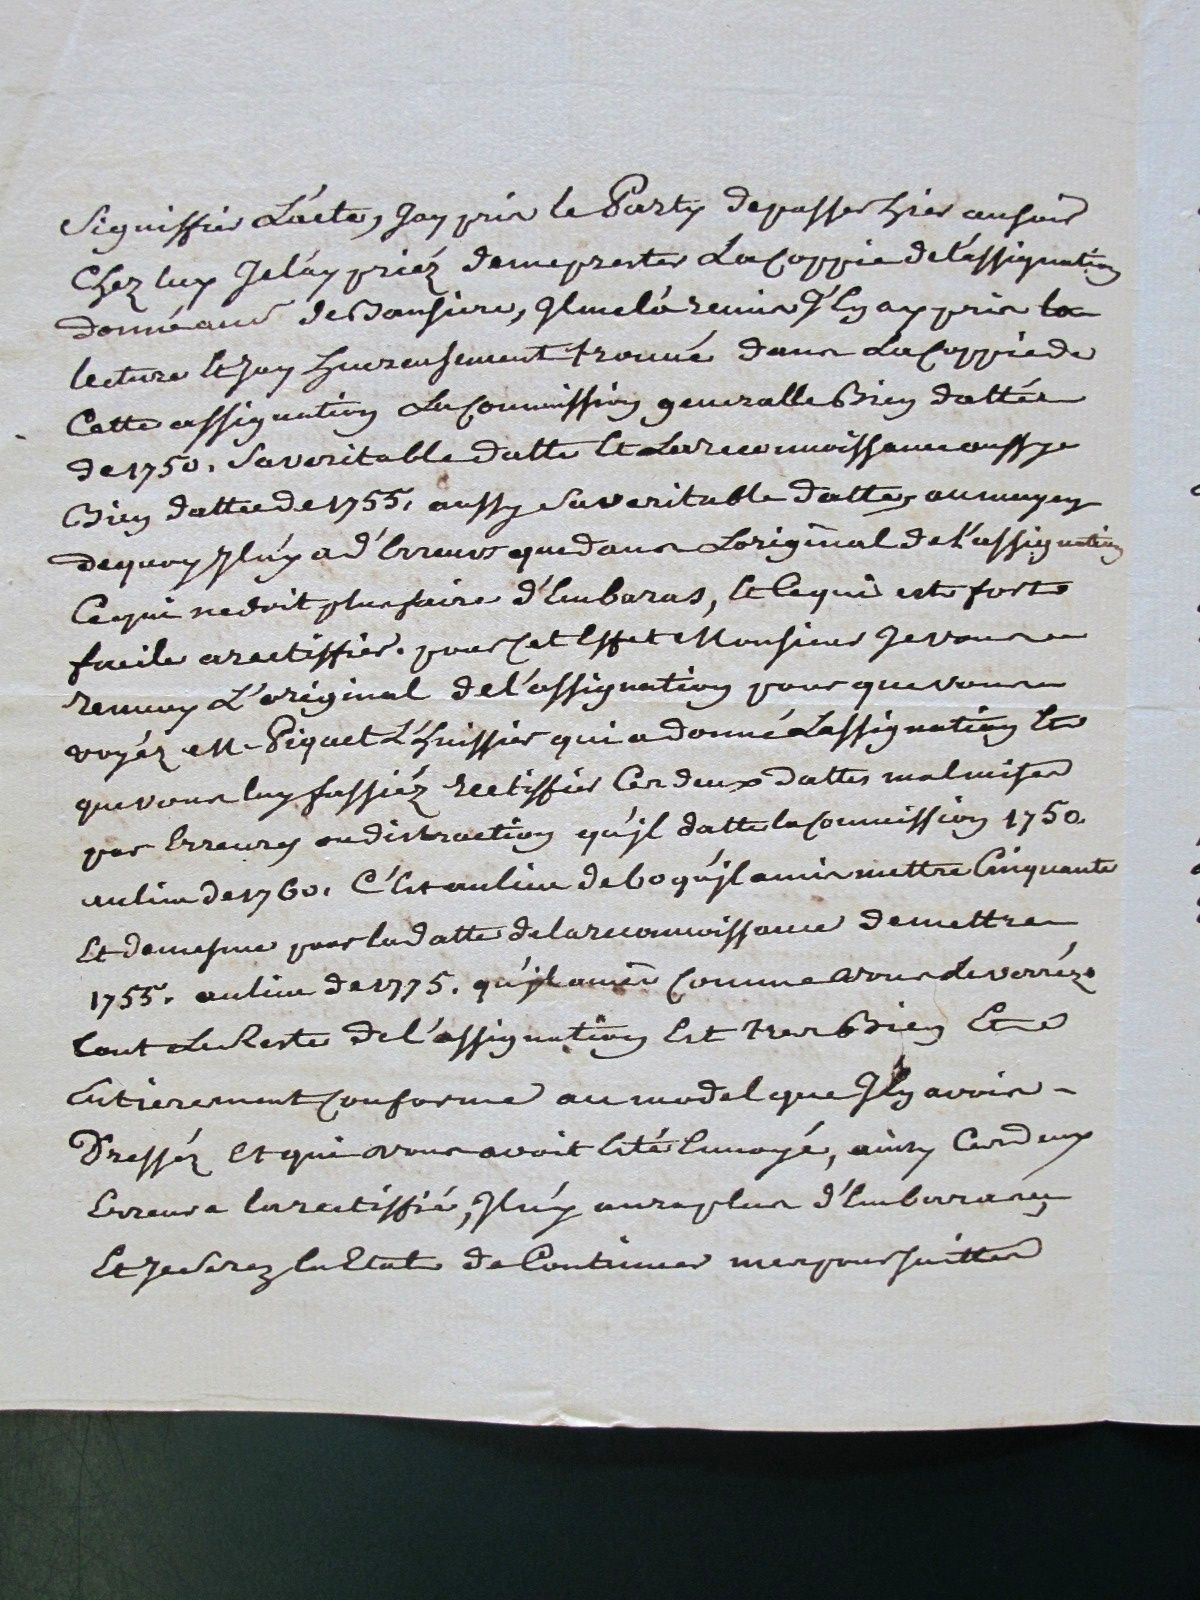 Signiffier L'acte, Jay pris le Party depasser hier ausoir
Chez luy Jel'ay priéz demeprester LaCoppie del'assignation
donnéaud de, Ilmel'a remis J'ly ay pris la
lecture Et Jay hureusement trouvé dans LaCoppie de
Cette assignation LaCommission generalle Bien dattée
de 1750. Saveritable datte Et Lareconnoissance aussy
Bien dattee de 1755. aussy Saveritable datte, aumoyen
dequoy Jln'y a d'Erreurs que dans Loriginal de L'assignation
Cequi nedoit plus faire d'Embaras, Et Cequi est fort
facile arectiffier. pour Cet Effet Monsieur Jevous
renvoy L'original del'assignation pour que vous
voyéz M. Piquet L'huissier qui a donné Lassignation Et
que vous luy fassiéz rectiffier Ces deux dattes malmises
par Erreurs oudistraction qu'jl datte la Commission 1750.
aulieu de 1760. C'Est aulieu de 60 qu'jl a mis mettre Cinquante
Et demesme pour la datte delareconnoissance demettre
1755. aulieu de 1775. qu'jl amis Comme vous Leverréz
tout Le Reste del'assignation Est tres Bien Et
Entierement Conforme au model que Jly avois
Dresséz Et qui vous avoit Esté Envoyé, ainsy Ces deux
Erreurs Enrectiffié, Jln'y aura plus d'Embarras
Et Jeserez En Etat de Continuer mes poursuittes